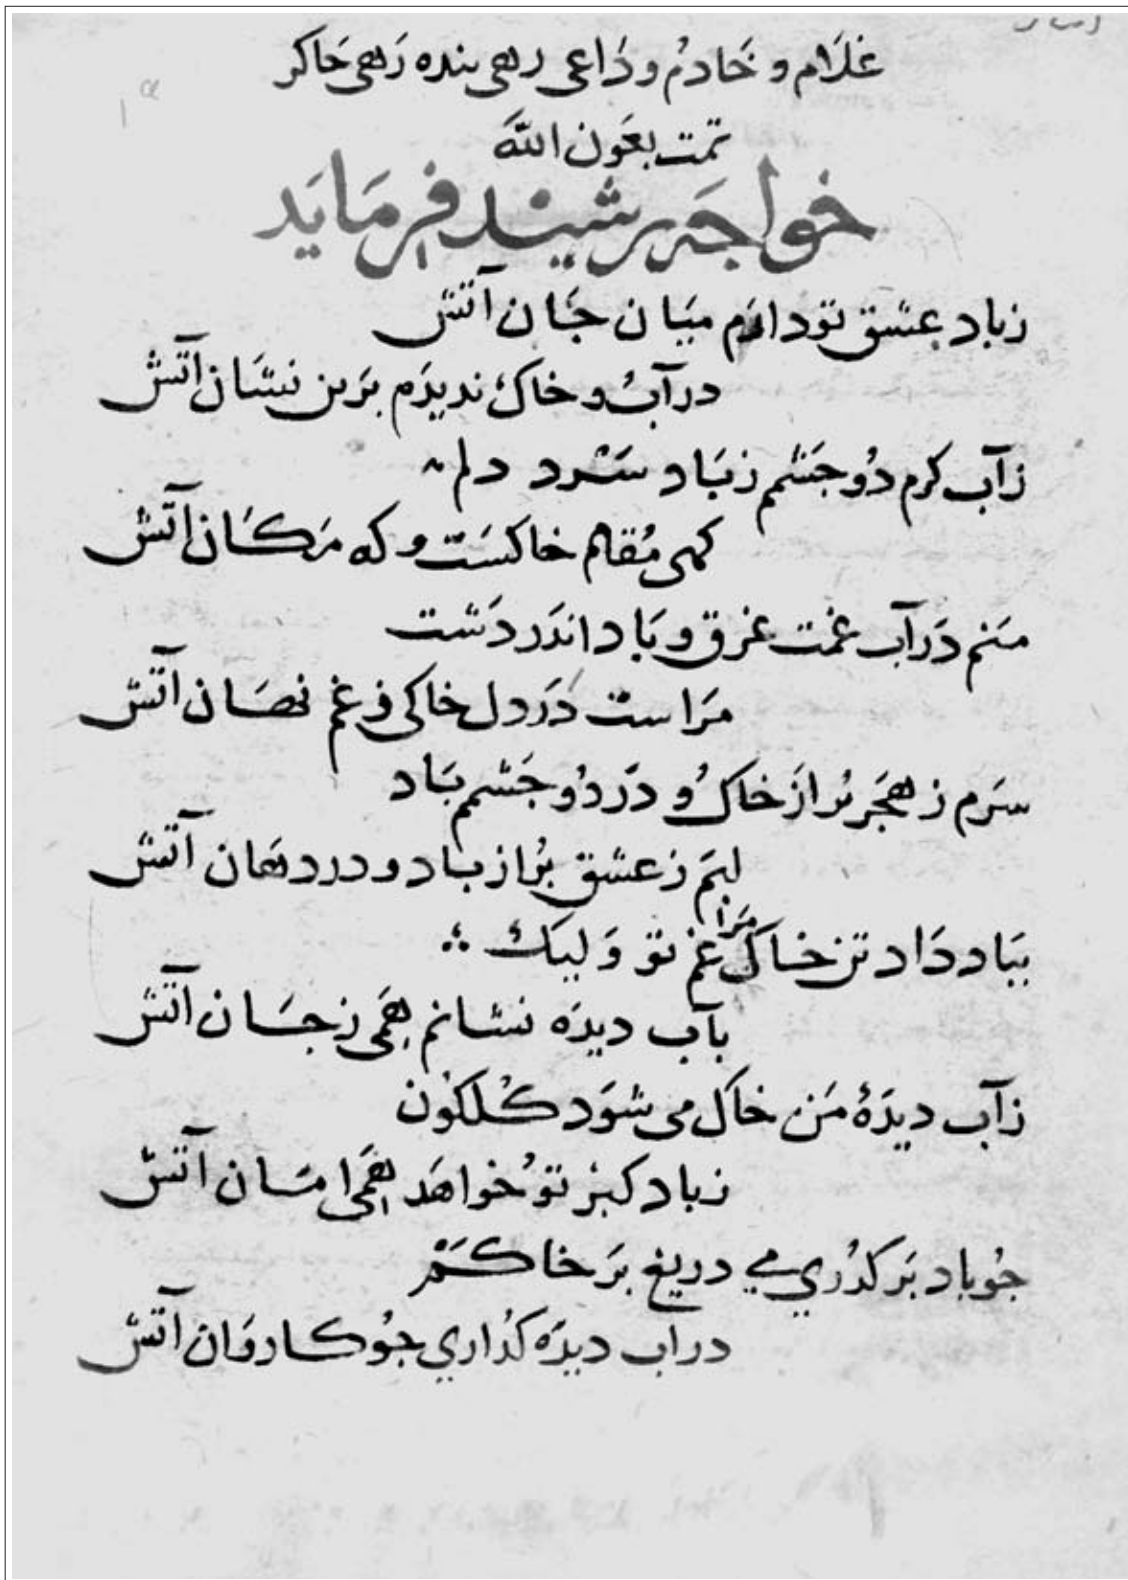 غلام و خادم و داعی رهی بنده رهی چاکر
تمت بعون الله
خواجه رشید فرماید
زباد عشق تو دارم میان جان آتش
در آب و خاک ندیدم برین نشان آتش
زآب کرم دو چشم زباد سرد دلم
کهی مقام خاکست و که مکان آتش
منم در آب غمت غرق و باد اندر دست
مراست در دل خاکی و غم نهان آتش
سرم ز هجر پر از خاک و در دو چشم باد
لبم ز عشق پر از باد و در دهان آتش
بباد داد تن خاک مرا غم تو ولیک
بآب دیده نشانم همی ز جان آتش
زآب دیدهٔ من خاک می شود کلکون
زباد کبر تو خواهد همی امان آتش
جو باد بر کذری بی دریغ بر خاکم
در اب دیده کذاری جو کاروان آتش